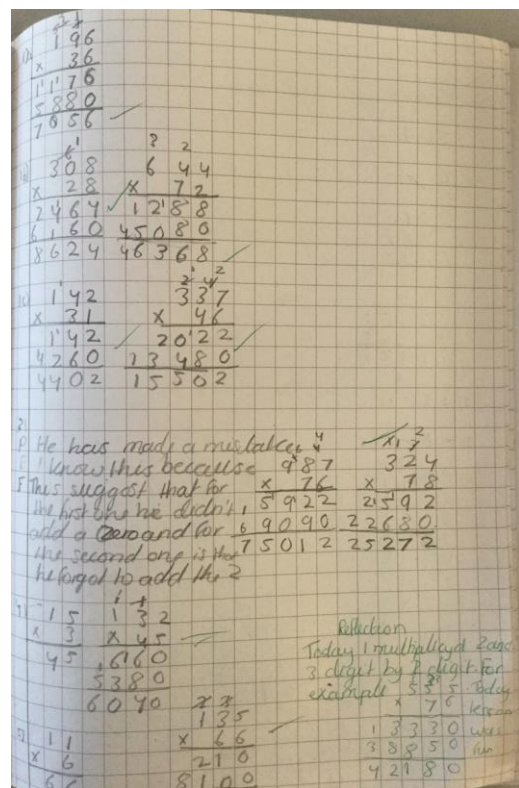 196
x 36
1176
5880
7056
308
x 28
2464
6160
8624
644
x 72
1288
45080
46368
142
x 31
142
4260
4402
337
x 46
2022
13480
15502
He has made a mistake
I know this because
This suggest that for
the first one he didn't
add a zero and for
the second one is that
he forgot to add the 2
987
x 76
5922
69090
75012
324
x 78
2592
22680
25272
15
x 3
45
132
x 45
660
5380
6040
11
x 6
66
135
x 66
210
8100
Reflection
Today I multiplicyd 2 and
3 digit by 2 digit for
example 555 Today
x 76 lesson
3330 was
38850 fun
42180